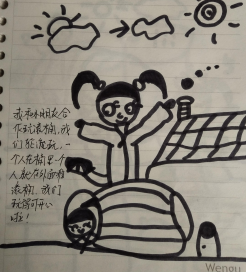 或和小朋友合
作玩滚桶,我
们能说玩,一
个人在桶里一个
人就在外面推
滚桶,我们
玩得可开心
啦!
Wenqu